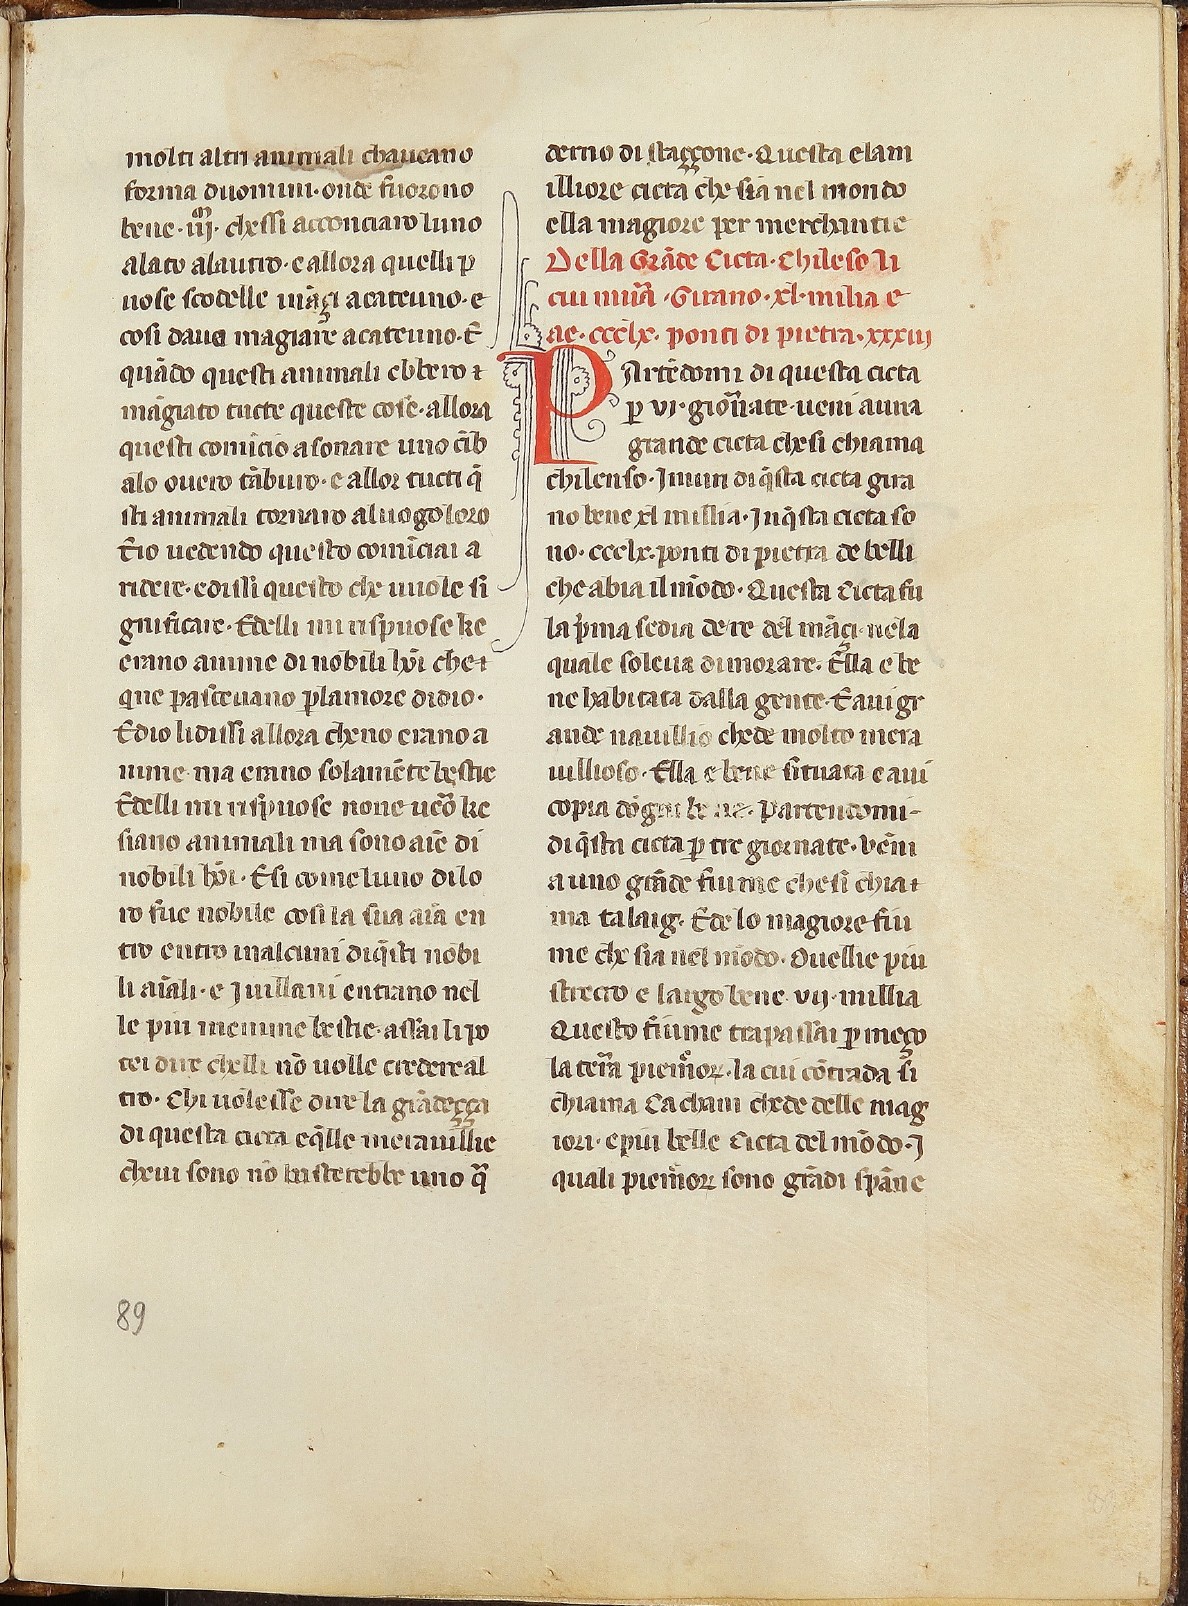 molti altri animali chaueano
forma duomini · onde fuorono
bene · iijᵐ · chessi acconciaro luno
alato alautro · e allora quelli p̲
uose scodelle inãçi acateuno · e
cosi daua magiar̃e acateuno · E
quãdo questi animali ebbero ⁊
mãgiato tucte queste cose · allora
questi comĩcio a sonare uno cĩb
alo ouero tãburo · e allor tucti q̃
sti animali tornaro al luogo loro
Eio uedendo questo comĩciai a
ridere · edissi questo che uuole si
gnificare · Edelli mi rispuose ke
erano anime di nobili hõi che ⁊
que pasceuano p̲lamore didio ·
Edio lidissi allora cheno erano a
nime ma erano solamẽte bestie
Edelli mi rispuose none ueõ ke
siano animali ma sono aĩe di
nobili hõi · E si come luno dilo
ro fue nobile cosi la sua aĩa en
tro entro inalcuni diq̃sti nobi
li aĩali · e J uillani entrano nel
le piu menime bestie · assai li po
tei dire chelli nõ uolle credere al
tro · Chi uolesse dire la grãdeçça
di questa cicta eq̃lle merauillie
cheui sono nõ basterebbe uno q̃
derno di staççone · Questa elam
illiore cicta che sia nel mondo
ella magiore per merchantie
Della Grãde Cicta · Chileso li
cui mura · Girano · xl · milia e
ae · ccclx · ponti di pietra · xxxiij
PArtẽdomi di questa cicta
p̲ vj · giornate · ueni auna
grande cicta che si chiama
chilenso · J muri di q̃sta cicta gira
no bene xl millia · J nq̃sta cicta so
no · ccclx · ponti di pietra de belli
che abia il mõdo · Questa Cicta fu
la p̃ma sedia de re del mãçi · nela
quale soleua dimorare · Ella e be
ne habitata dalla gente · E aui gr
ande nauillio chede molto mera
uillioso · Ella e bene situata e aui
copia dõgni bene · Partendomi-
di q̃sta cicta p̲ tre giornate · vẽni
a uno grãde fiume che si chia ⁊
ma talaig · Ede lo magiore fiu
me che sia nel mõdo · Quellie piu
strecto e largo bene · vij · millia
Questo fiume trapassai p̲ meço
la terra piemor̃ · la cui cõtrada si
chiama Cacham chede delle mag
iori · epiu belle Cicta del mõdo · J
quali piemor̃ sono grãdi spãne
89